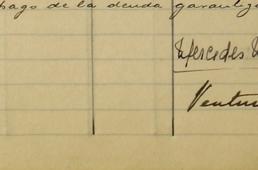 pago de la deuda garantiz
Mercedes
Ventur